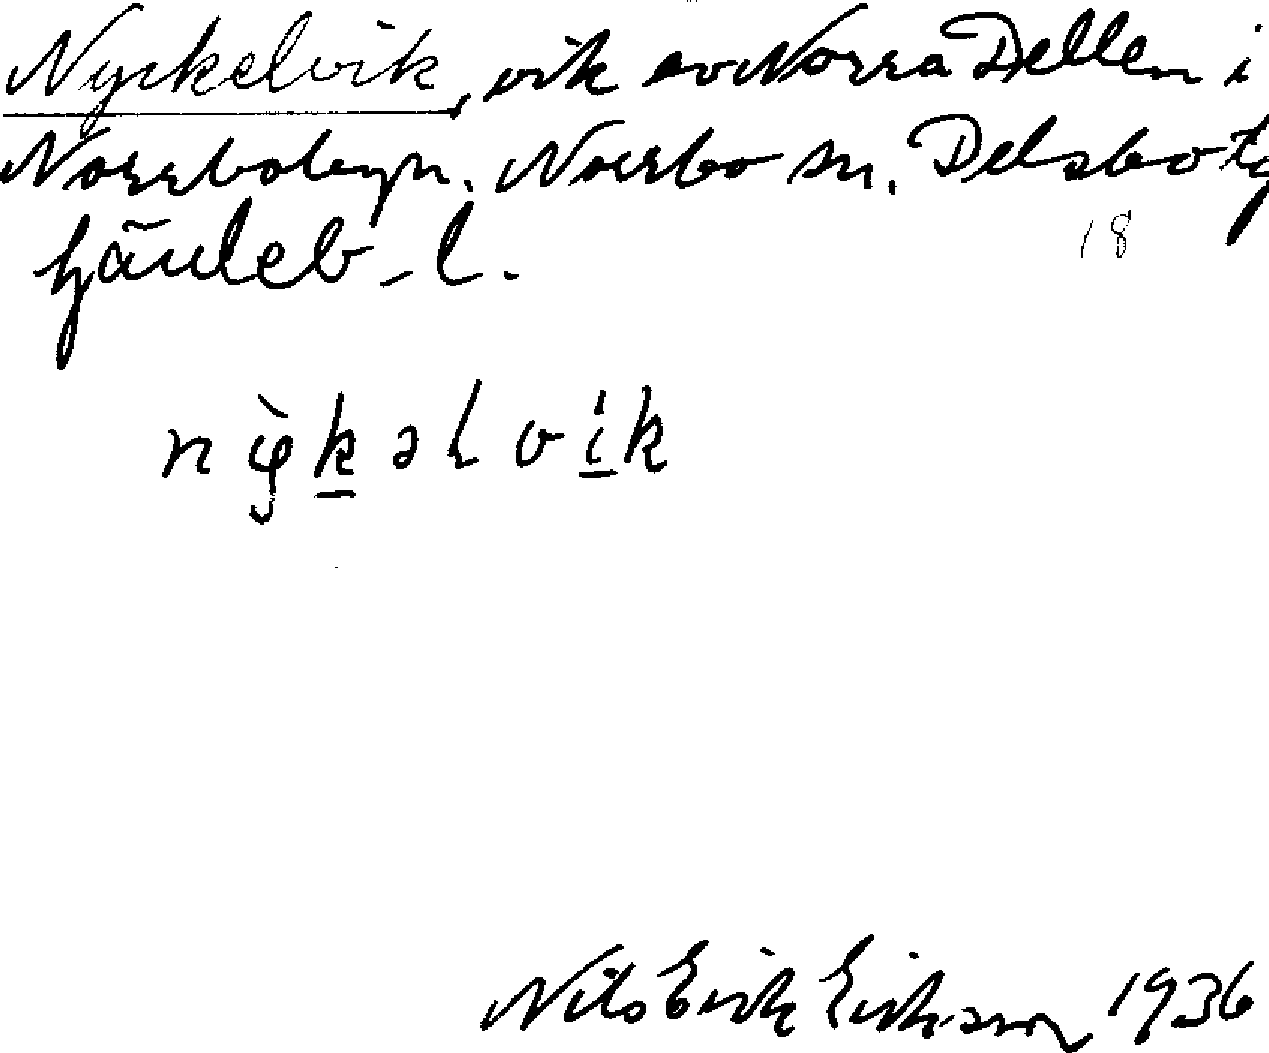 Nyckelvik, vik av Norra Dellen i
Norrbobyn. Norrbo sn, Delsbo tg
Gävleb-l.
18
Nils Erik Eriksson 1936